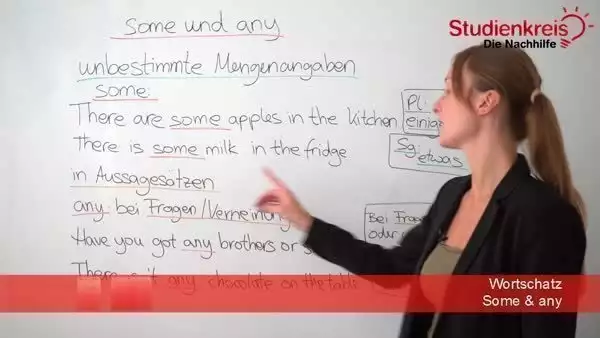 Some und any
Studienkreis
Die Nachhilfe
unbestimmte Mengenangaben
some:
There are some apples in the kitchen
Pl.
There is some milk in the fridge
Sg.
etwas
in Aussagesätzen
any: bei Fragen/Verneinung
Bei
Have you got any brothers or
any chocolate on the table
Wortschatz
Some & any